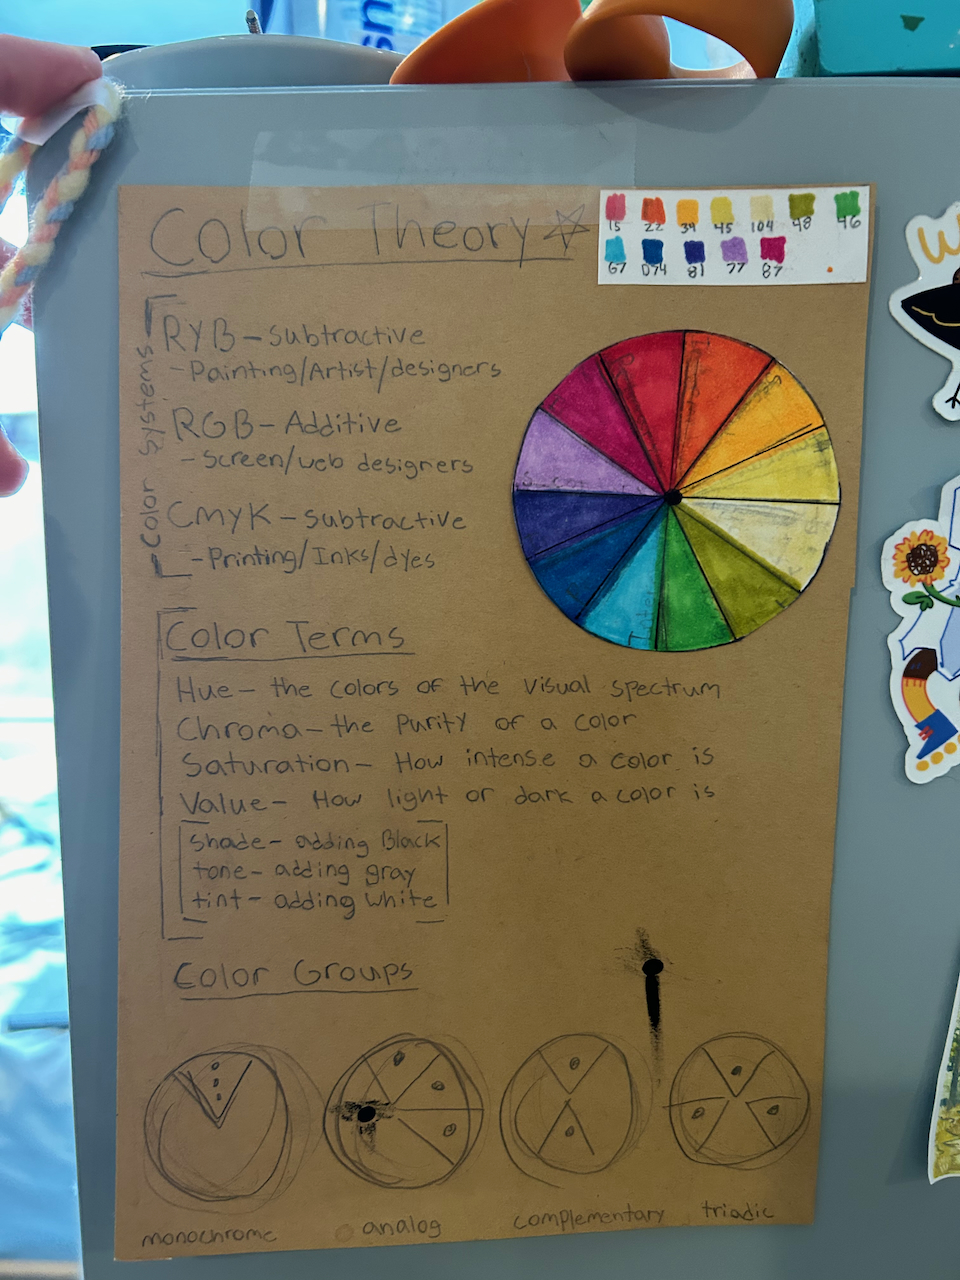 Color Theory
15 22 39 45 104 48 46
67 D74 81 77 87
Color Systems
RYB - Subtractive
- Painting/Artist/designers
RGB - Additive
- Screen/web designers
CMYK - Subtractive
- Printing/Inks/dyes
Color Terms
Hue - the colors of the visual spectrum
Chroma - the Purity of a color
Saturation - How intense a color is
Value - How light or dark a color is
Shade - adding Black
tone - adding gray
tint - adding white
Color Groups
monochrome analog complementary triadic